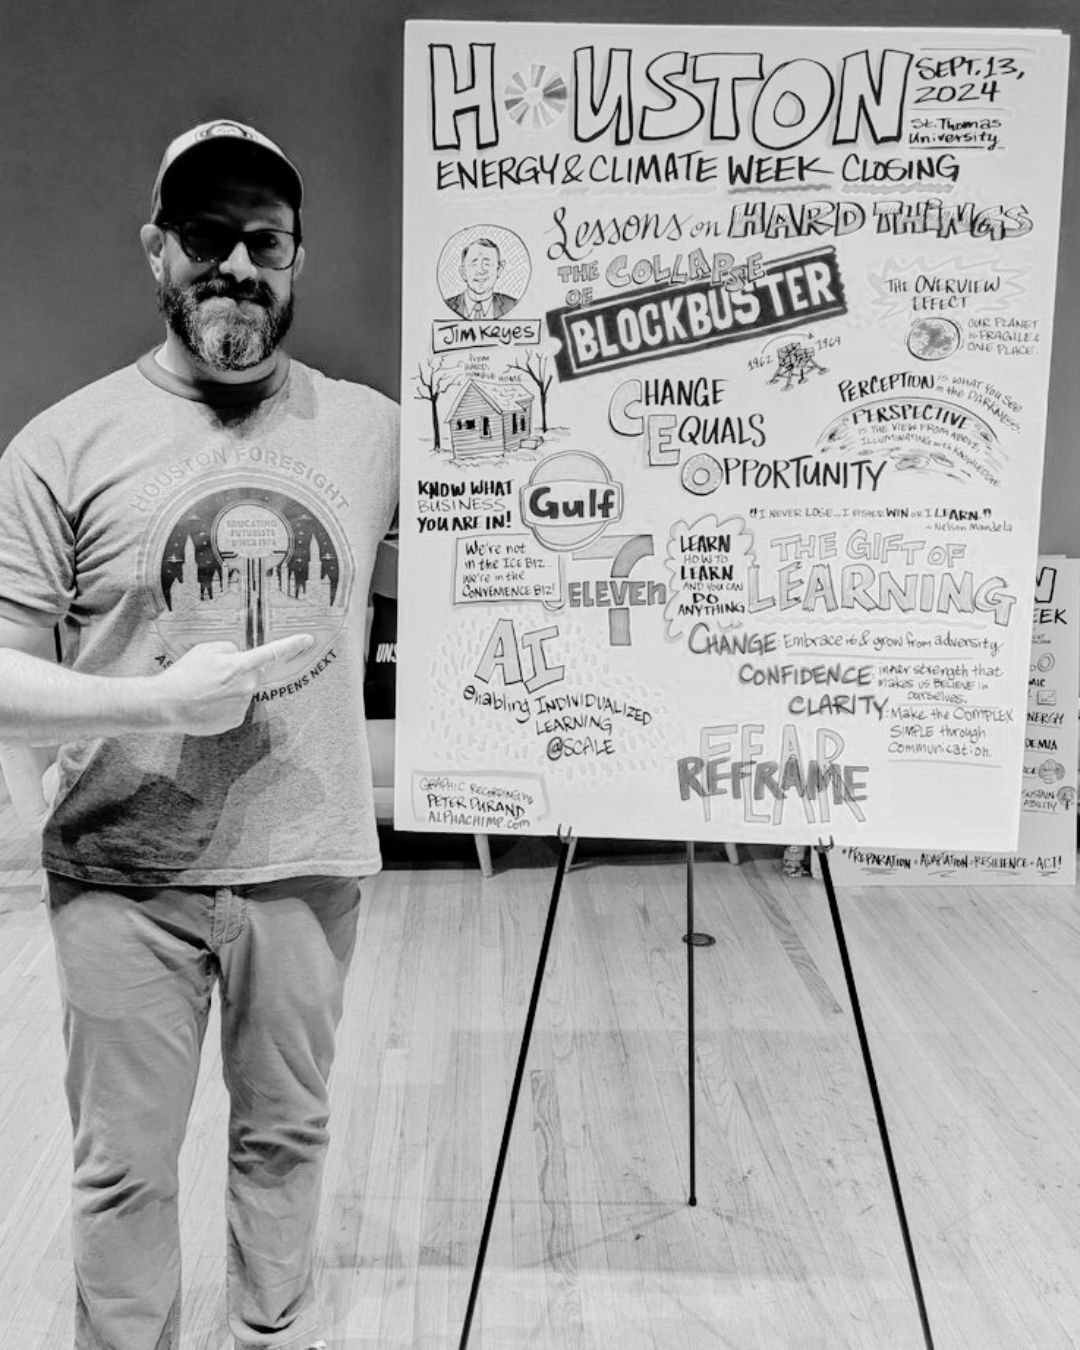 HOUSTON
SEPT. 13,
2024
St. Thomas
University
ENERGY & CLIMATE WEEK CLOSING
Lessons on HARD THINGS
THE COLLAPSE
OF
BLOCKBUSTER
Jim Keyes
from
HARD,
HUMBLE HOME
THE OVERVIEW
EFFECT
OUR PLANET
is FRAGILE &
ONE PLACE.
1962
1969
CHANGE
EQUALS
OPPORTUNITY
PERCEPTION is WHAT YOU SEE
in the DARKNESS.
PERSPECTIVE
IS THE VIEW FROM ABOVE,
ILLUMINATING with KNOWLEDGE
KNOW WHAT
BUSINESS
YOU ARE IN!
Gulf
"I NEVER LOSE... I EITHER WIN or I LEARN."
~ Nelson Mandela
We're not
in the ICE BIZ...
we're in the
CONVENIENCE BIZ!
7
ELEVEn
LEARN
HOW TO
LEARN
AND YOU CAN
DO
ANYTHING
THE GIFT OF
LEARNING
CHANGE: Embrace it & grow from adversity
CONFIDENCE: inner strength that
makes us BELIEVE in
ourselves.
CLARITY: Make the COMPLEX
SIMPLE through
Communication.
AI
enabling INDIVIDUALIZED
LEARNING
@SCALE
FEAR
REFRAME
FEAR
GRAPHIC RECORDING by
PETER DURAND
ALPHACHIMP.com
HOUSTON FORESIGHT
EDUCATING
FUTURISTS
SINCE 1974
HAPPENS NEXT
UNS
N
EEK
MIC
ENERGY
DEMIA
SUSTAIN
ABILITY
• PREPARATION • ADAPTATION • RESILIENCE • ACT!